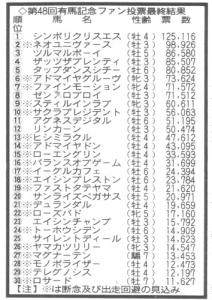 ◇第48回有馬記念ファン投票最終結果
順位 馬名 性齢 票数
1 シンボリクリスエス(牡4)125,116
2※ネオユニヴァース(牡3)98,926
3 ツルマルボーイ(牡5)86,580
4 ザッツザプレンティ(牡3)86,507
5 タップダンスシチー(牡6)85,860
6※アドマイヤグルーヴ(牝3)73,624
7 ファインモーション(牝4)71,572
8 ゼンノロブロイ(牡3)
9※スティルインラブ(牝3)60,611
10※サクラプレジデント(牡3)56,063
11 アグネスデジタル(牡6)
12 リンカーン(牡3)50,474
13※ヒシミラクル(牡4)47,612
14※アドマイヤドン(牡4)43,095
15※ローエングリン(牡4)33,593
16※バランスオブゲーム(牡4)31,699
17※イーグルカフェ(牡6)24,394
18※デュランダル(牡4)
19 ファストタテヤマ(牡4)21,620
20※サンライズペガサス(牡5)20,971
21※
22※ローズバド(牝5)17,160
23※エイシンチャンプ(牡3)15,792
24※トーホウシデン(牡6)14,909
25 サイレントディール(牡3)14,623
26※ヤマカツリリー(牝3)14,547
27※マグナーテン(騸7)13,453
28※モノポライザー(牡4)12,473
29※テレグノシス(牡4)12,197
30※ロサード(牡7)11,627
【注】※は断念及び出走回避の見込み